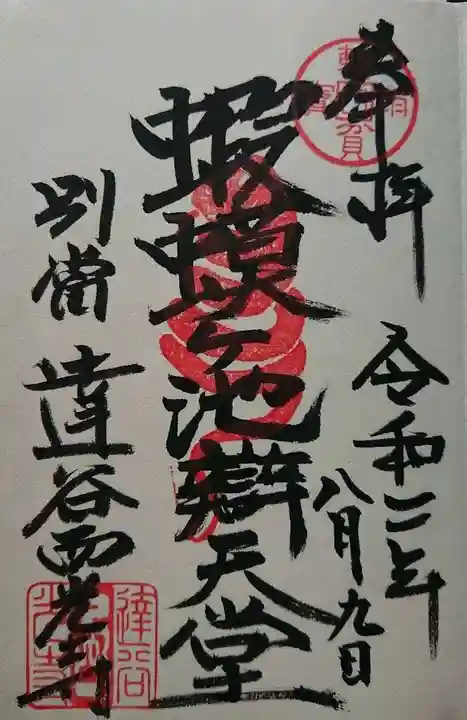 奉拝
令和二年
八月九日
蝦蟆ヶ池辯天堂
別當
達谷西光寺